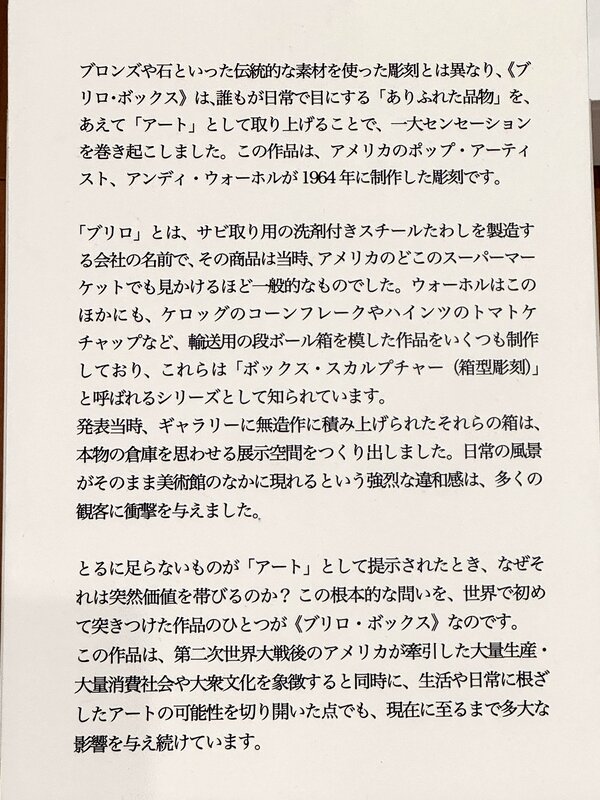 ブロンズや石といった伝統的な素材を使った彫刻とは異なり、《ブ
リロ・ボックス》は、誰もが日常で目にする「ありふれた品物」を、
あえて「アート」として取り上げることで、一大センセーション
を巻き起こしました。この作品は、アメリカのポップ・アーティ
スト、アンディ・ウォーホルが1964年に制作した彫刻です。
「ブリロ」とは、サビ取り用の洗剤付きスチールたわしを製造す
る会社の名前で、その商品は当時、アメリカのどこのスーパーマー
ケットでも見かけるほど一般的なものでした。ウォーホルはこの
ほかにも、ケロッグのコーンフレークやハインツのトマトケ
チャップなど、輸送用の段ボール箱を模した作品をいくつも制作
しており、これらは「ボックス・スカルプチャー（箱型彫刻）」
と呼ばれるシリーズとして知られています。
発表当時、ギャラリーに無造作に積み上げられたそれらの箱は、
本物の倉庫を思わせる展示空間をつくり出しました。日常の風景
がそのまま美術館のなかに現れるという強烈な違和感は、多くの
観客に衝撃を与えました。
とるに足らないものが「アート」として提示されたとき、なぜそ
れは突然価値を帯びるのか？ この根本的な問いを、世界で初め
て突きつけた作品のひとつが《ブリロ・ボックス》なのです。
この作品は、第二次世界大戦後のアメリカが牽引した大量生産・
大量消費社会や大衆文化を象徴すると同時に、生活や日常に根ざ
したアートの可能性を切り開いた点でも、現在に至るまで多大な
影響を与え続けています。